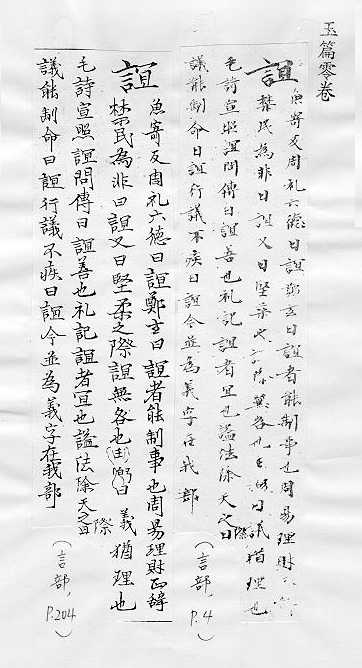 玉篇零卷
誼 魚寄反周礼六德曰誼鄭玄曰誼者能制事也周易理財
禁民為非曰誼又曰堅柔之際誼無咎也王弼曰義猶理也
毛詩宣照誼問傳曰誼善也礼記誼者宜也謚法除天之曰際
議能制命曰誼行議不疾曰誼今並為義字在我部
（言部，P.4）
誼 魚寄反周礼六德曰誼鄭玄曰誼者能制事也周易理財正辝
禁民為非曰誼又曰堅柔之際誼無咎也王弼曰義猶理也
毛詩宣照誼問傳曰誼善也礼記誼者宜也謚法除天之曰際
議能制命曰誼行議不疾曰誼今並為義字在我部
（言部，P.204）